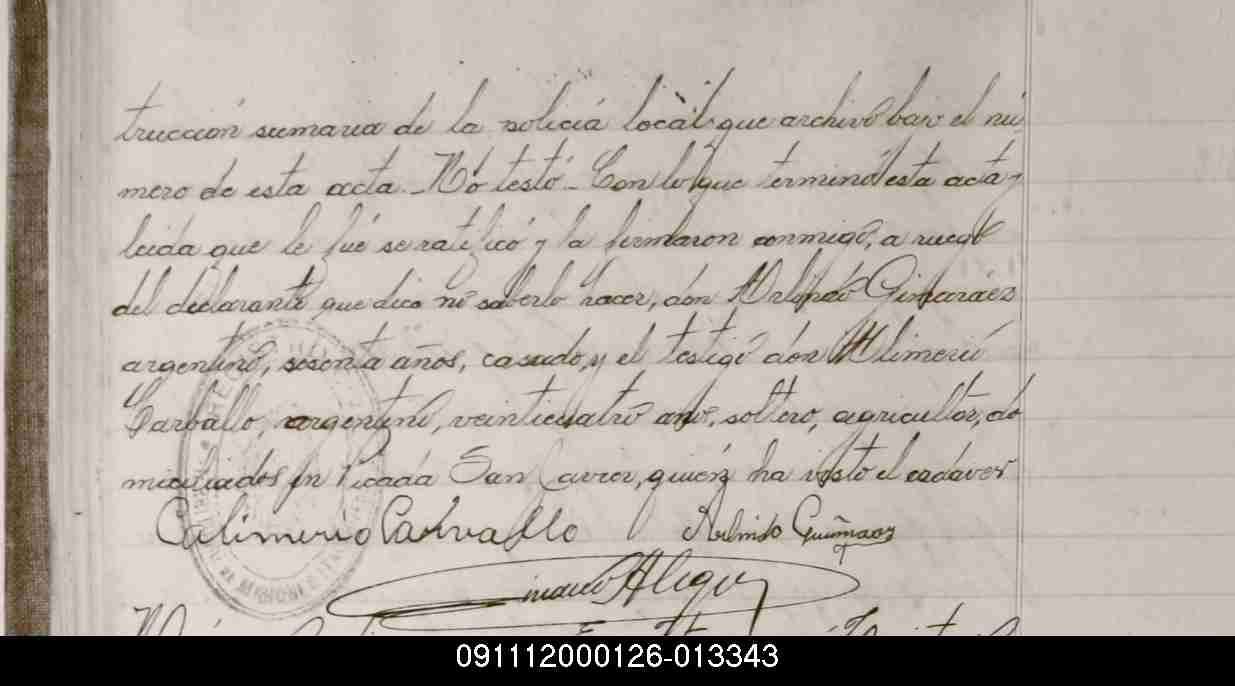 trucción sumaria de la policía local que archivo bajo el nú-
mero de esta acta._ No testó._ Con lo que terminó esta acta y
leida que le fué se ratificó y la firmaron conmigo, a ruego
del declarante que dice no saberlo hacer, don Gimaraez
argentino, sesenta años, casado, y el testigo don Alimerio
Carballo, argentino, veinticuatro años, soltero, agricultor, do
miciliados en Picada San Javier, quién ha visto el cadáver
Alimerio Carvallo
Alegre
091112000126-013343